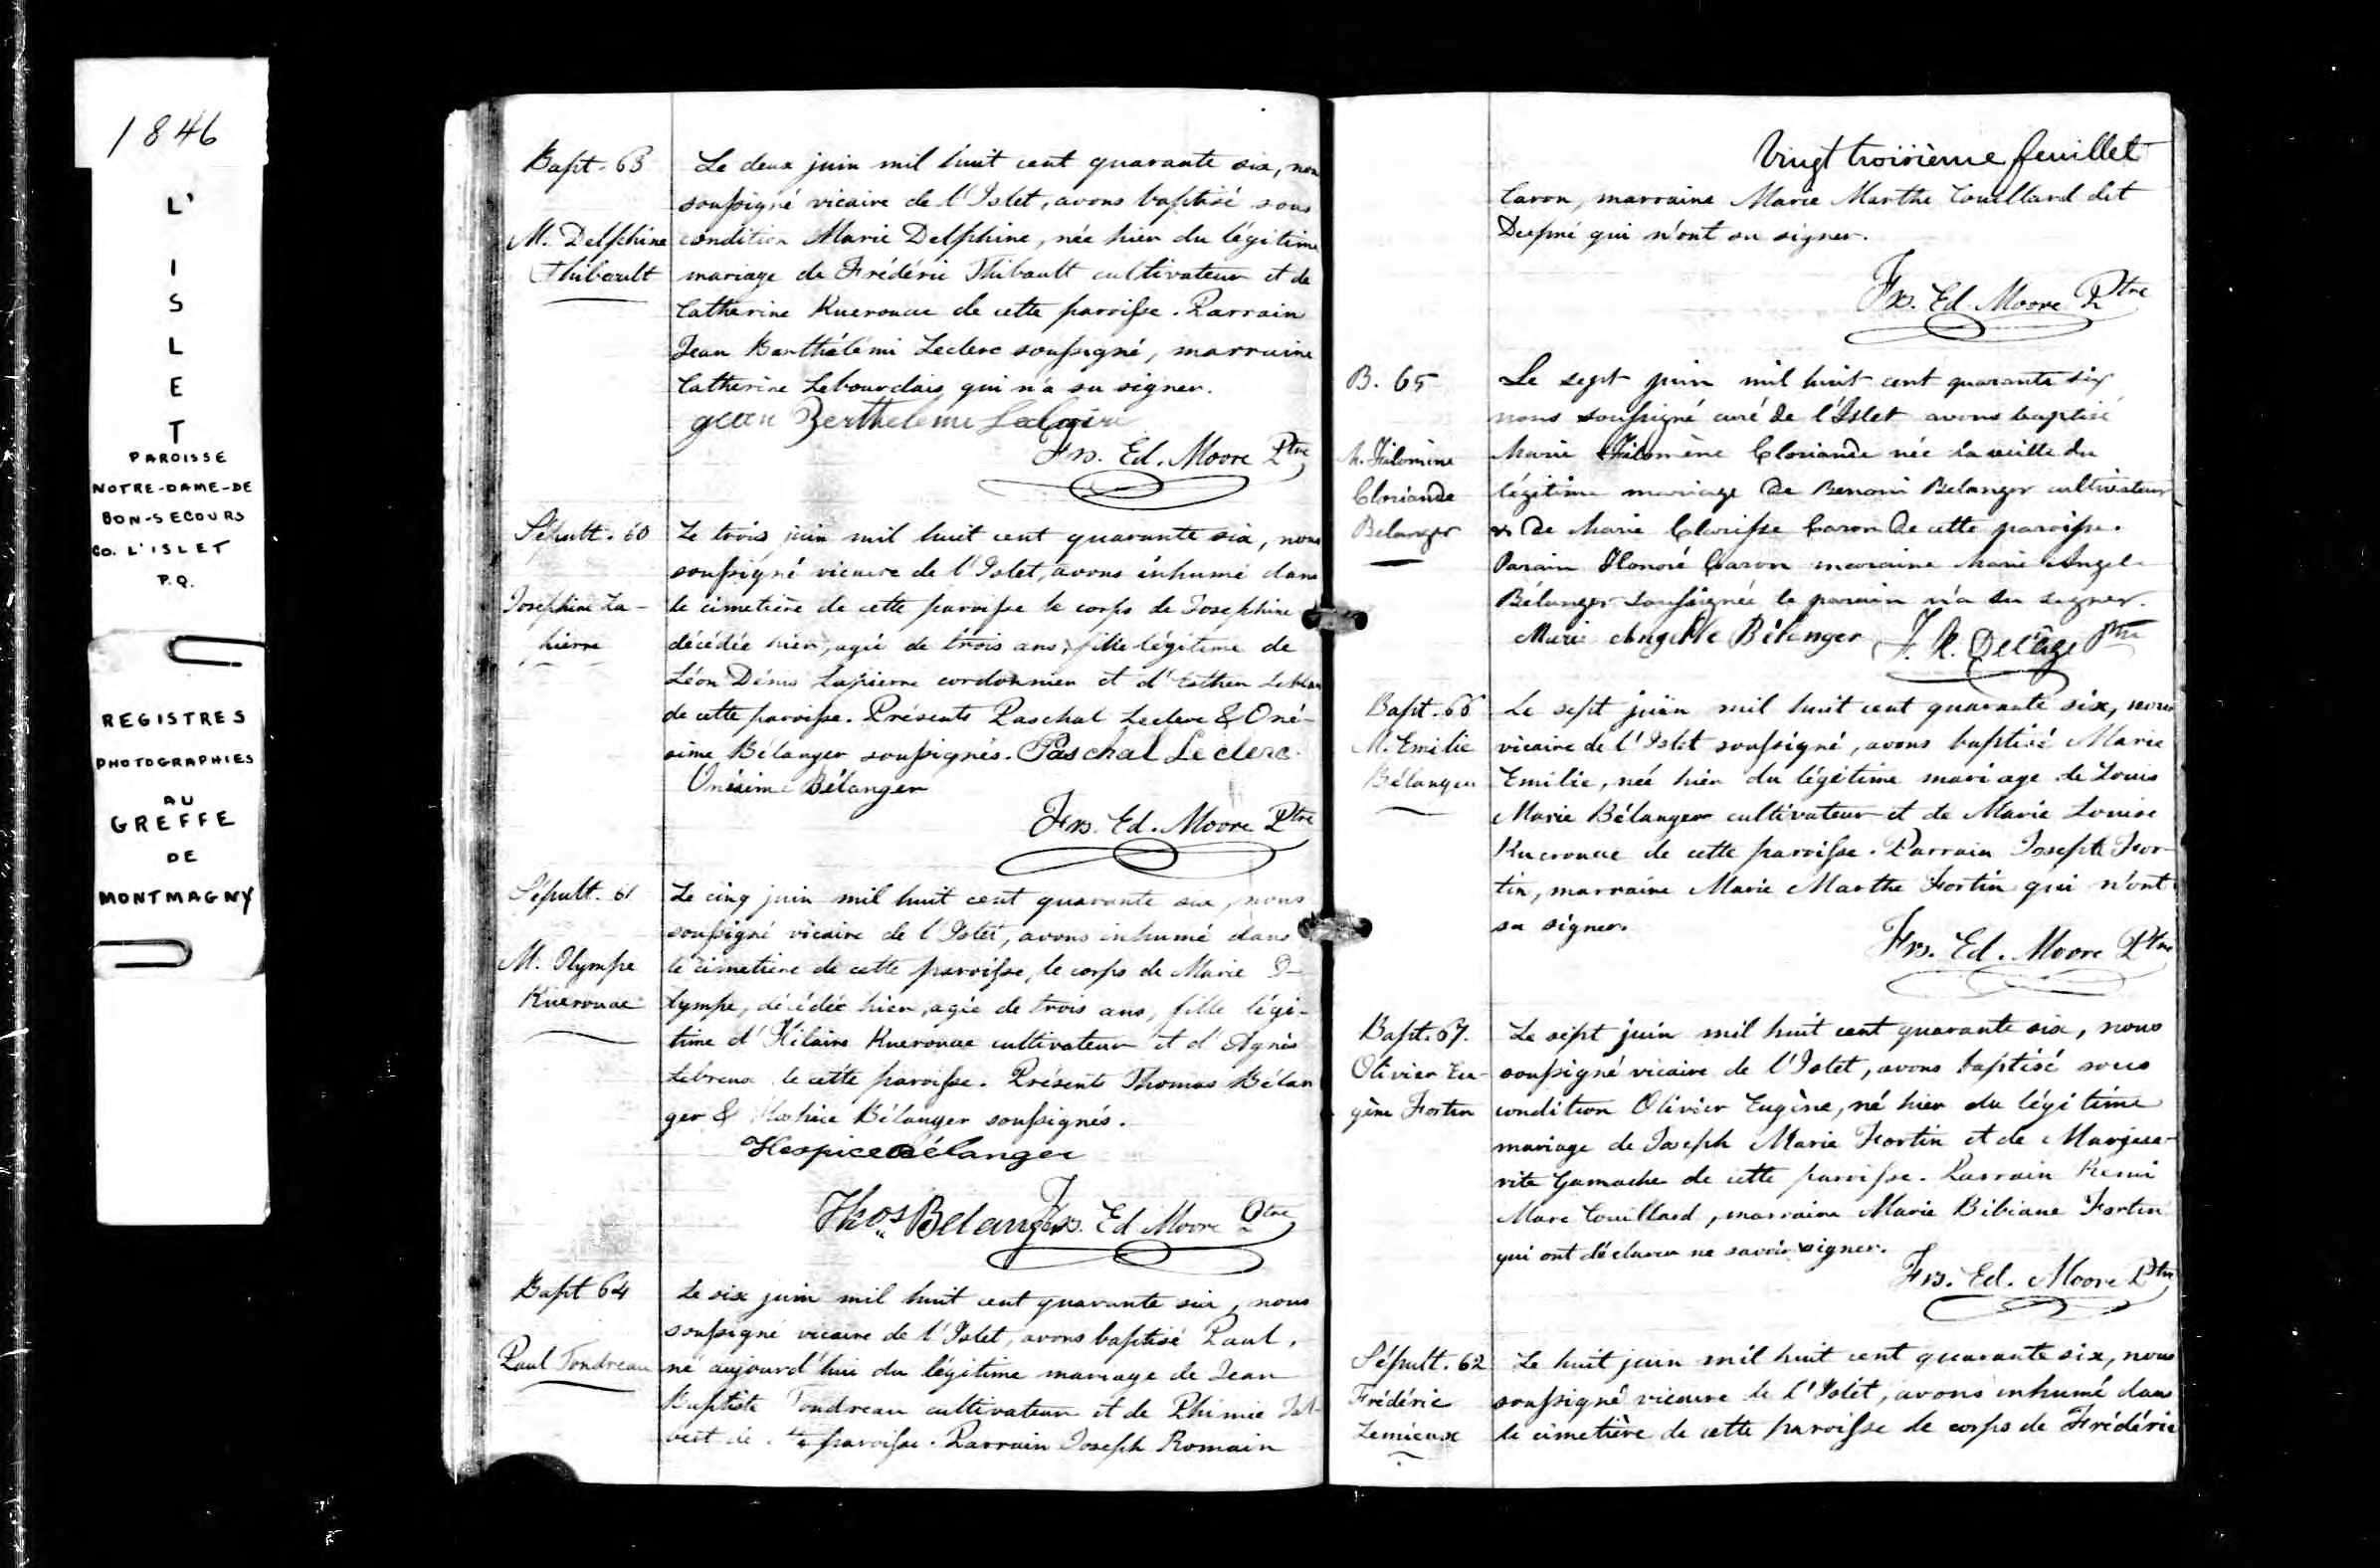 1846
L'
I
S
L
E
T
PAROISSE
NOTRE-DAME-DE
BON-SECOURS
CO. L'ISLET
P.Q.
REGISTRES
PHOTOGRAPHIES
AU
GREFFE
DE
MONTMAGNY
Bapt. 63
M. Delphine
Thibault
Le deux juin mil huit cent quarante six, nous
soussigné vicaire de l'Islet, avons baptisé sous
condition Marie Delphine, née hier du légitime
mariage de Frédéric Thibault cultivateur et de
Catherine Kuerouac de cette paroisse. Parrain
Jean Barthélémi Leclerc soussigné, marraine
Catherine Lebourdais qui n'a su signer.
Jean Berthelemi
Frs. Ed. Moore Ptre
Sépult. 60
Josephine La-
pierre
Le trois juin mil huit cent quarante six, nous
soussigné vicaire de l'Islet, avons inhumé dans
le cimetière de cette paroisse le corps de Josephine
décédée hier, agée de trois ans, fille légitime de
Léon Dénis Lapierre cordonnier et d'Esther
de cette paroisse. Présents Paschal Leclerc & Oné-
sime Bélanger soussignés. Paschal Leclerc
Onésime Bélanger
Frs. Ed. Moore Ptre
Sépult. 61
M. Olympe
Kuerouac
Le cinq juin mil huit cent quarante six, nous
soussigné vicaire de l'Islet, avons inhumé dans
le cimetière de cette paroisse, le corps de Marie O-
lympe, décédée hier, agée de trois ans, fille légi-
time d'Hilaire Kuerouac cultivateur et d'Agnès
Lebreux de cette paroisse. Présents Thomas Bélan
ger & Hospice Bélanger soussignés.
Hospice Bélanger
Thos Belanger Frs. Ed Moore Ptre
Bapt 64
Paul Tondreau
Le six juin mil huit cent quarante six, nous
soussigné vicaire de l'Islet, avons baptisé Paul,
né aujourd'hui du légitime mariage de Jean
Baptiste Tondreau cultivateur et de Phimie
de cette paroisse. Parrain Joseph Romain
Vingt troisième feuillet
Caron, marraine Marie Marthe Couillard dit
Dupui qui n'ont su signer.
Frs. Ed Moore Ptre
B. 65
M. Filomène
Cloriande
Belanger
Le sept juin mil huit cent quarante six
nous soussigné curé de l'Islet avons baptisé
Marie Filomène Cloriande née la veille du
légitime mariage de Benoni Belanger cultivateur
& de Marie Clarisse Caron de cette paroisse.
Parain Honoré Caron maraine Marie Angel-
Bélanger soussignée le parain n'a su signer.
Marie Angelle Bélanger F. X. Delâge Ptre
Bapt. 66
M. Emilie
Bélanger
Le sept juin mil huit cent quarante six, nous
vicaire de l'Islet soussigné, avons baptisé Marie
Emilie, née hier du légitime mariage de Louis
Marie Bélanger cultivateur et de Marie Louise
Kuerouac de cette paroisse. Parrain Joseph For-
tin, marraine Marie Marthe Fortin qui n'ont
su signer.
Frs. Ed. Moore Ptre
Bapt. 67.
Olivier Eu-
gène Fortin
Le sept juin mil huit cent quarante six, nous
soussigné vicaire de l'Islet, avons baptisé sous
condition Olivier Eugène, né hier du légitime
mariage de Joseph Marie Fortin et de Margue-
rite Gamache de cette paroisse. Parrain Remi
Marc Couillard, marraine Marie Bibiane Fortin
qui ont déclaré ne savoir signer.
Frs. Ed. Moore Ptre
Sépult. 62
Frédéric
Lemieux
Le huit juin mil huit cent quarante six, nous
soussigné vicaire de l'Islet, avons inhumé dans
le cimetière de cette paroisse le corps de Frédéric